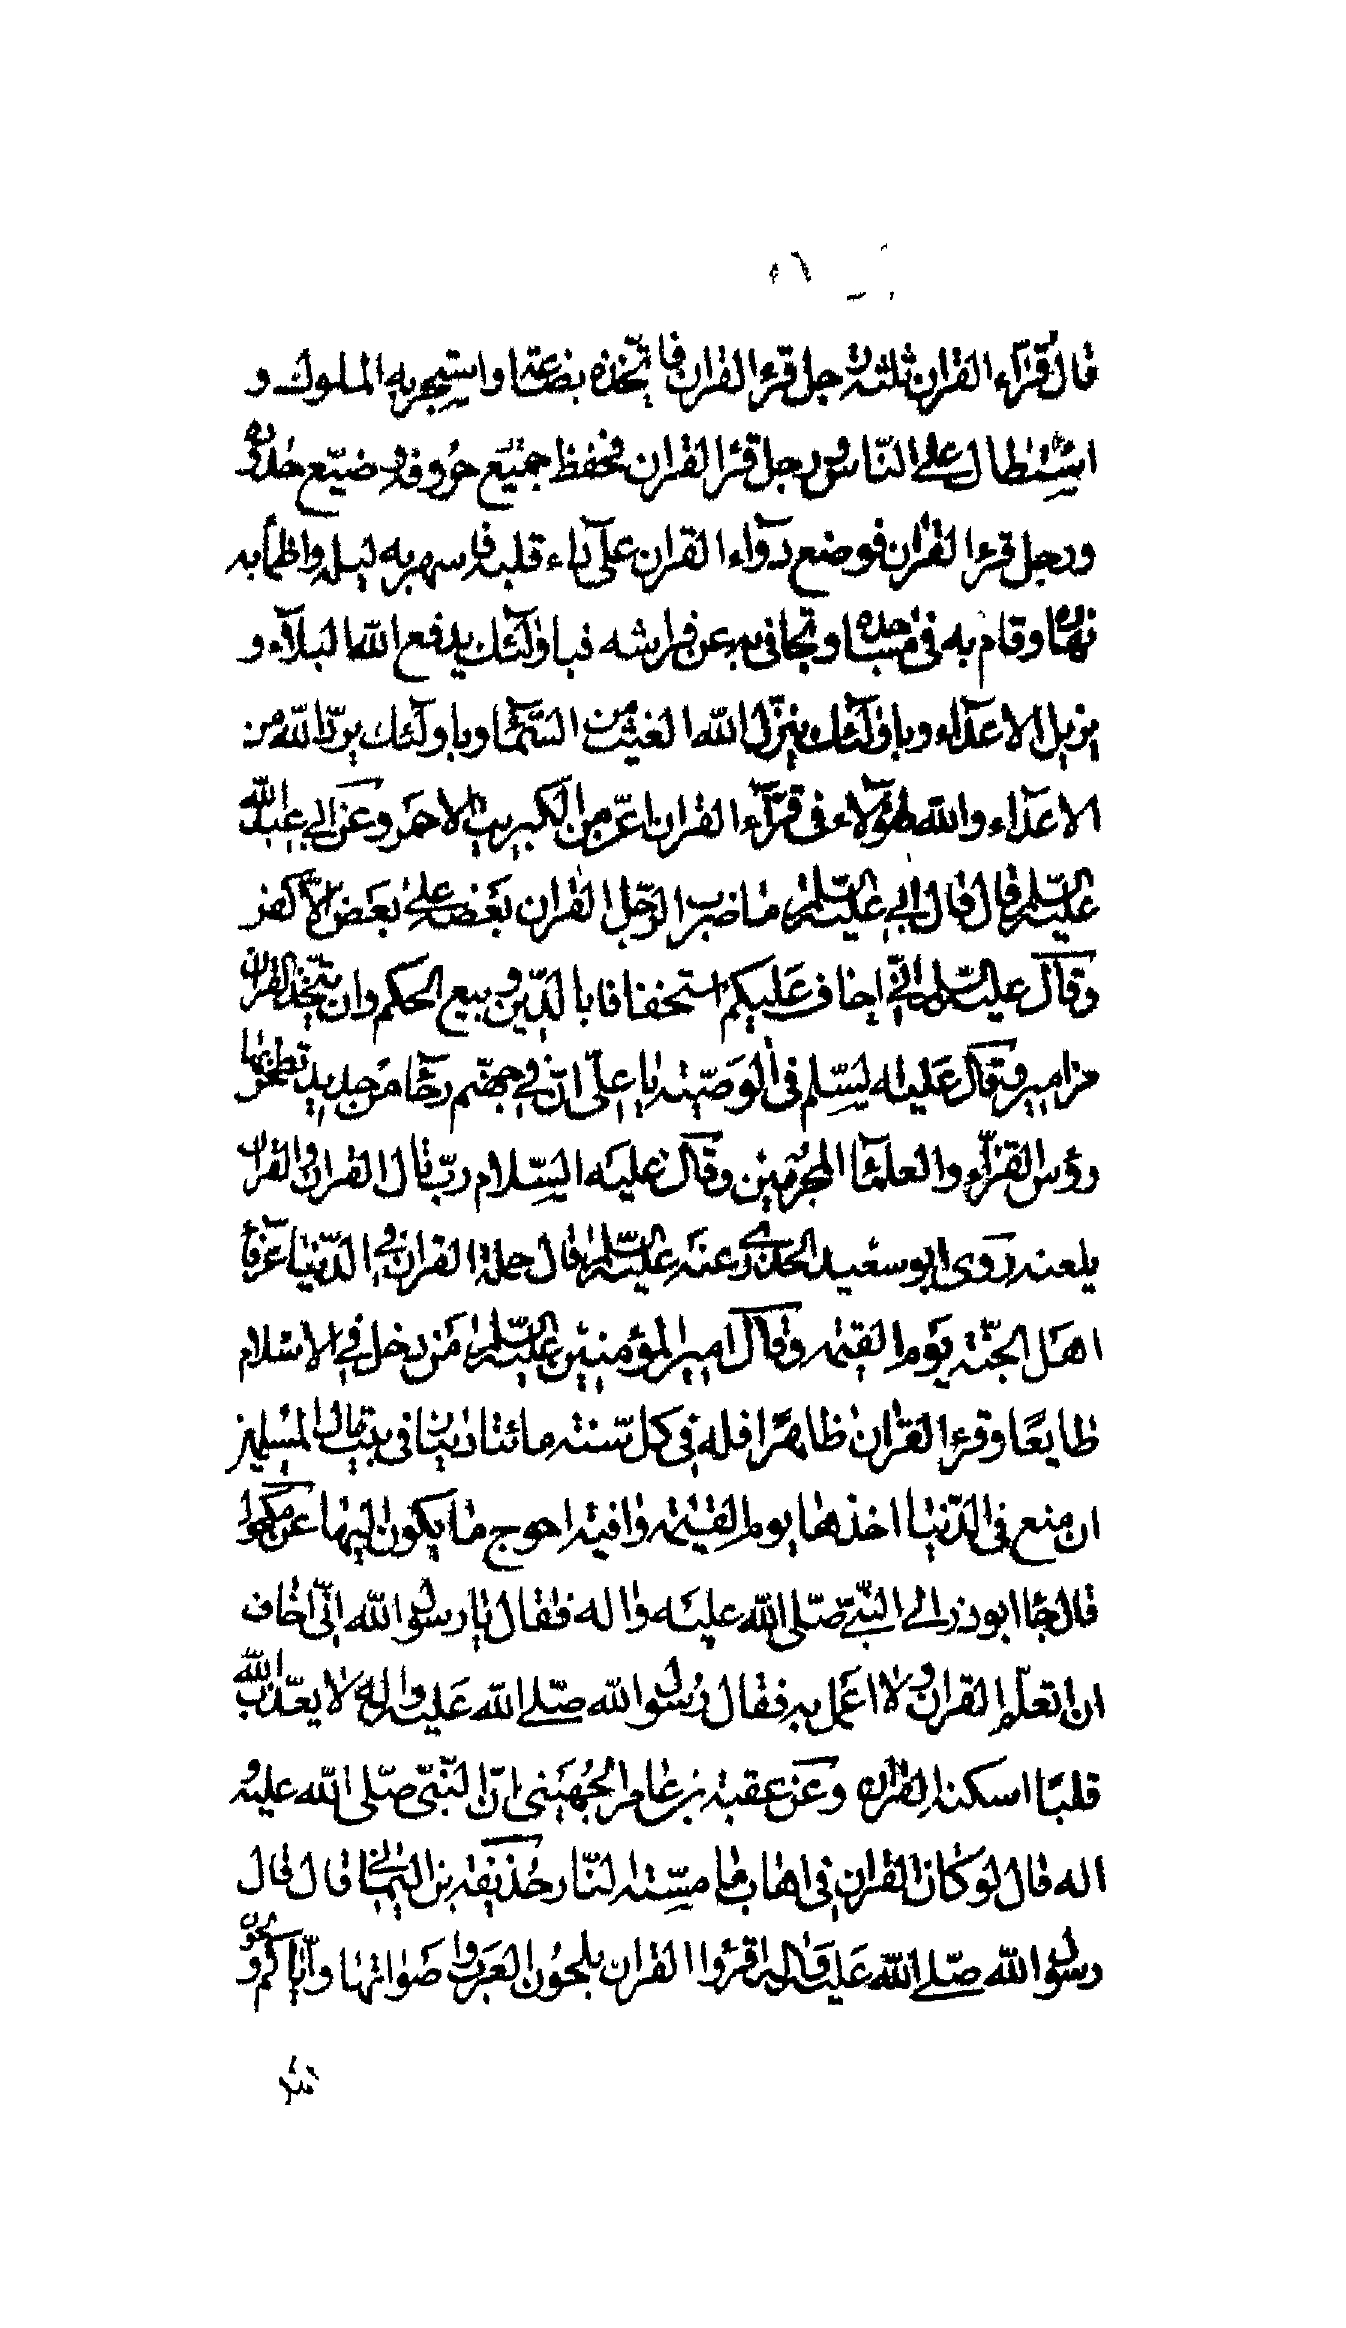 قال قرآء القران ثلثة رجل قرء القران فاتخذه بضاعة واستجر به الملوك و
استطال على الناس ورجل قرء القران فحفظ جميع حروفه وضيّع حدوده
ورجل قرء القران فوضع دوآء القران على داء قلبه فاسهر به ليله واظمأ به
نهاره وقام به فى مساجده وتجافى به عن فراشه فباولٓئك يدفع الله البلآء و
يزيل الاعدآء وباولٓئك ينزل الله الغيث من السّمآء وباولٓئك يردّ الله من
الاعدآء والله لهؤلآء فى قرّآء القران اعزّ من الكبريت الاحمر وعن ابي عبد الله
عليه السّلم قال قال ابي عليه السّلم ما ضرب الرّجل القران بعضه على بعض الّا كفر
وقال عليه السّلم انّي اخاف عليكم استخفافا بالدّين وبيع الحكم وان تتّخذ القران
مزامير وقال عليه لسّلم فى الوصيّة يا علىّ انّ فى جهنّم رحًا من حديد تطحن بها
رؤس القرّآء والعلمآء المجرمين وقال عليه السّلام ربّ تال القران والقران
يلعنه روى ابو سعيد الخدرى عنه عليه السّلم قال حملة القران فى الدّنيا عرفآء
اهل الجنّة يوم القيٰمة وقال امير المؤمنين عليه السّلم من دخل فى الاسلام
طايعًا وقرء القران ظاهرًا فله فى كل سنة مائتا دينار فى بيت مال المسلمين
ان منع فى الدّنيا اخذها يوم القيٰمة وافية احوج ما يكون اليها عن مكحول
قال جآء ابو ذر الى النّبيّ صلّى الله عليه واله فقال يا رسول الله انّى اخاف
ان اتعلّم القران ولا اعمل به فقال رسول الله صلّى الله عليه واله لا يعذّب الله
قلبًا اسكنه القران وعن عقبة بن عامر الجهنى انّ النّبىّ صلّى الله عليه و
اله قال لو كان القران فى اهاب ما مسّته النّار حذيفة بن اليمانى قال قال
رسول الله صلّى الله عليه واله اقرؤا القران بلحون العرب واصواتها وايّاكم و لحون